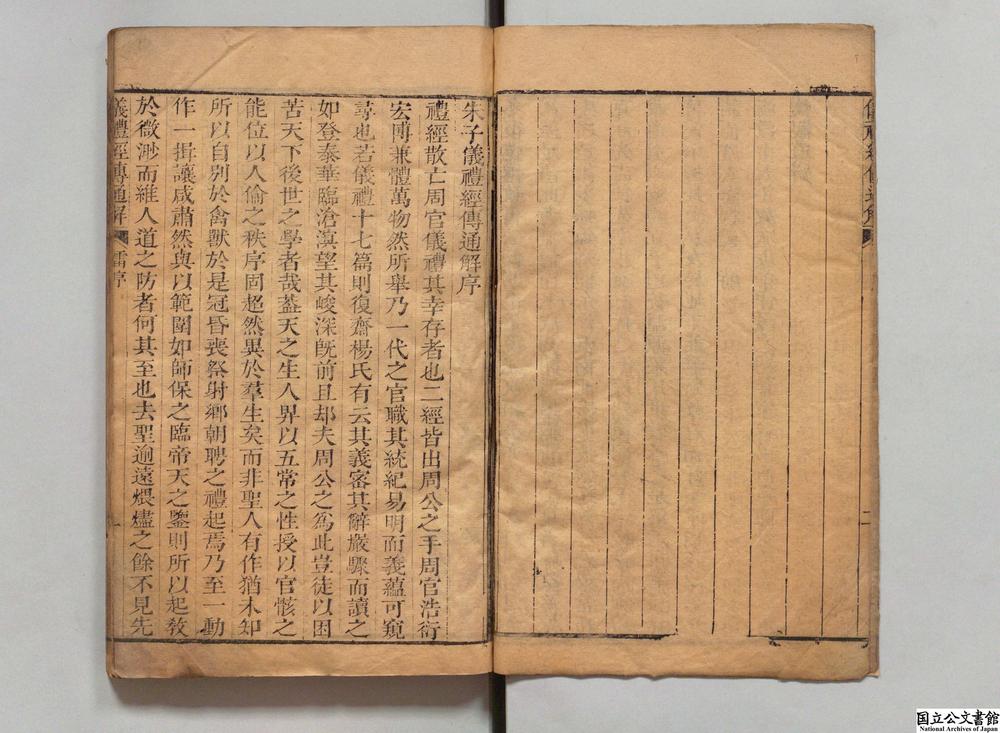 朱子儀禮經傳通解序
禮經散亡周官儀禮其幸存者也二經皆出周公之手周官浩衍
宏博兼體萬物然所舉乃一代之官職其統紀易明而義蘊可窺
尋也若儀禮十七篇則復齋楊氏有云其義審其辭嚴驟而讀之
如登泰華臨滄溟望其峻深旣前且却夫周公之爲此豈徒以困
苦天下後世之學者哉葢天之生人畀以五常之性授以官骸之
能位以人倫之秩序固超然異於羣生矣而非聖人有作猶未知
所以自別於禽獸於是冠昏喪祭射鄉朝聘之禮起焉乃至一動
作一揖讓咸肅然與以範圍如師保之臨帝天之鑒則所以起敎
於微渺而維人道之防者何其至也去聖逾遠煨燼之餘不見先
儀禮經傳通解
雷序
一
二
国立公文書館
National Archives of Japan